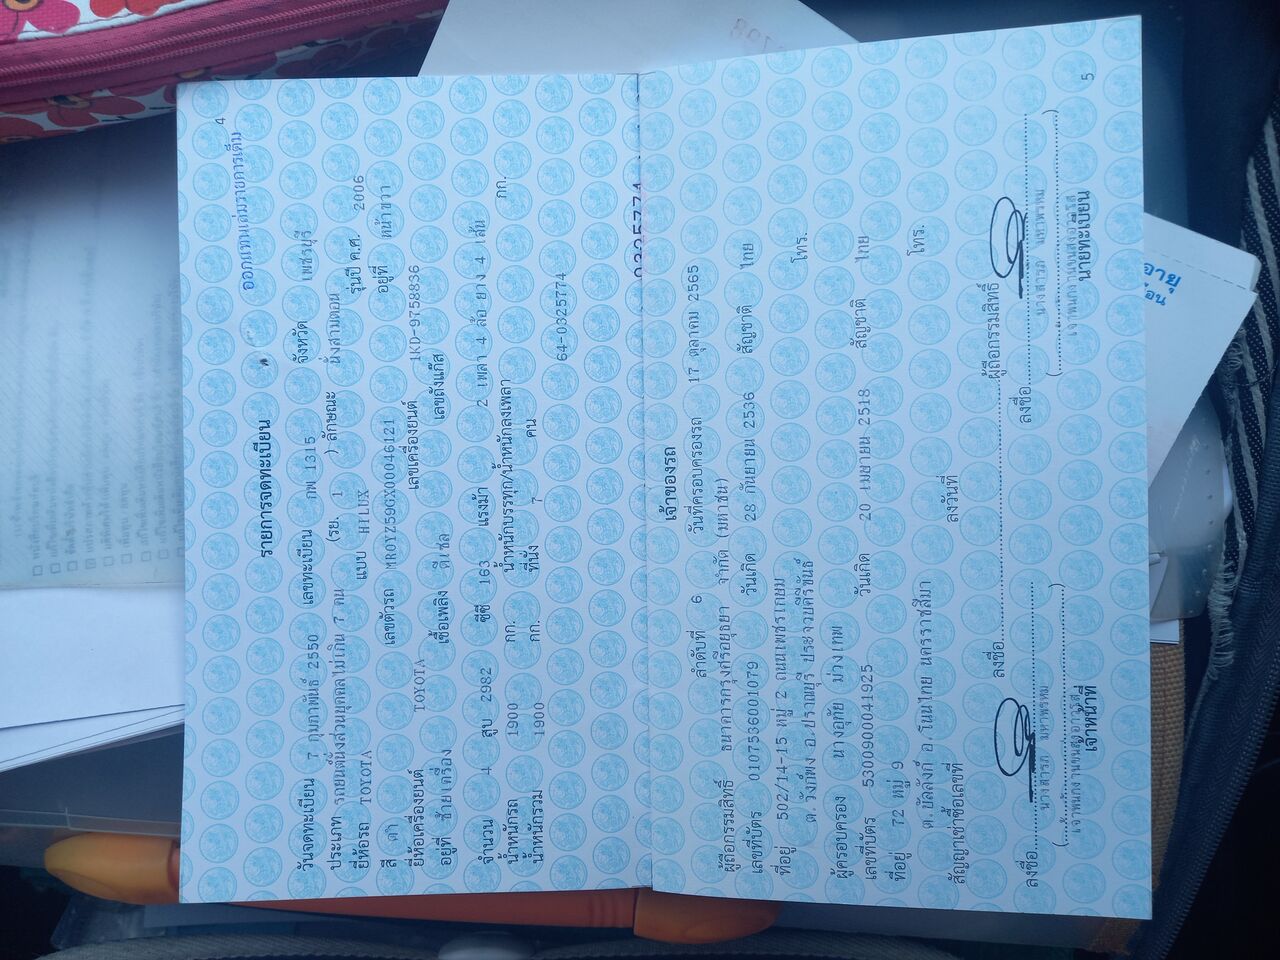 4
ออกแทนเล่มรายการเต็ม
รายการจดทะเบียน
วันจดทะเบียน 7 กุมภาพันธ์ 2550 เลขทะเบียน กพ 1315 จังหวัด เพชรบุรี
ประเภท รถยนต์นั่งส่วนบุคคลไม่เกิน 7 คน (รย. 1 ) ลักษณะ นั่งสามตอน
ยี่ห้อรถ TOYOTA แบบ HILUX รุ่นปี ค.ศ. 2006
สี ดำ เลขตัวรถ MR0YZ59GX00046121 อยู่ที่ หน้าขวา
ยี่ห้อเครื่องยนต์ TOYOTA เลขเครื่องยนต์ 1KD-9758836
อยู่ที่ ซ้ายเครื่อง เชื้อเพลิง ดีเซล เลขถังแก๊ส
จำนวน 4 สูบ 2982 ซีซี 163 แรงม้า 2 เพลา 4 ล้อ ยาง 4 เส้น
น้ำหนักรถ 1900 กก. น้ำหนักบรรทุก/น้ำหนักลงเพลา กก.
น้ำหนักรวม 1900 กก. ที่นั่ง 7 คน
64-0325774
0325774
เจ้าของรถ
ลำดับที่ 6 วันที่ครอบครองรถ 17 ตุลาคม 2565
ผู้ถือกรรมสิทธิ์ ธนาคารกรุงศรีอยุธยา จำกัด (มหาชน)
เลขที่บัตร 0107536001079 วันเกิด 28 กันยายน 2536 สัญชาติ ไทย
ที่อยู่ 502/14-15 หมู่ 2 ถนนเพชรเกษม โทร.
ต.วังก์พง อ.ปราณบุรี ประจวบคีรีขันธ์
ผู้ครอบครอง นางอุทัย ม่วงเทม
เลขที่บัตร 5300900041925 วันเกิด 20 เมษายน 2518 สัญชาติ ไทย
ที่อยู่ 72 หมู่ 9 โทร.
ต.บัลลังก์ อ.โนนไทย นครราชสีมา
สัญญาเช่าซื้อเลขที่ ลงวันที่
ลงชื่อ ผู้ถือกรรมสิทธิ์
ลงชื่อ ลงชื่อ
นางสารภ มหาพรหม นางสารภ มหาพรหม
เจ้าพนักงานขนส่งอาวุโส เจ้าพนักงานขนส่งอาวุโส
เจ้าหน้าที่ นายทะเบียน
5
อายุ